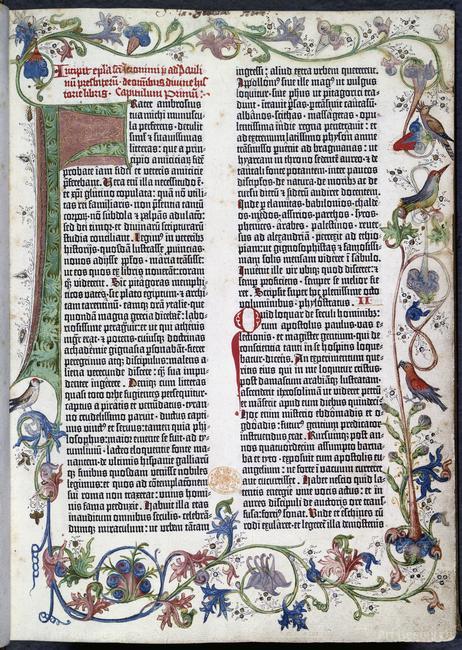 Incipit ep̄la sc̄i ieronimi ꝑ ad pauli
nū presbiterū de omībus diuine his
torie libris. Capitulum primū.
Frater ambrosius
tua michi munuscu
la perferens · detulit
simul ⁊ suauissimas
litteras · que a prin
cipio amiciciaꝝ fidē
probate iam fidei et veteris amicicie
noua p̄ferebant.
ris familiaris · non p̄sentia tantum
corpoꝝ · nō subdola ⁊ palpās adulacō ·
sed dei timor · et diuinaꝝ scripturarū
studia conciliant. Legimus in veterib;
historijs · quosdā lustrasse prouincias ·
nouos adisse pplos · maria trāsisse ·
ut eos quos ex libris nouerant · coram
q̄ viderent. Sic pitagoras memphi
ticos vates · sic plato egiptum · ⁊ archi
tam tarentinum · eamq; oram ytalie · que
quondā magna grecia dicebat̄ · labo
riosissime peragrauit : ut qui athenis
cademie gignasia ꝑsonabāt · fieret
peregrinus atq; discipulus : malens a
liena verecunde discere · q̄ sua impu
denter ingerere. Deniq; cum litteras
quasi toto orbe fugientes persequitur ·
captus a piratis et venundatus · tyran
no crudelissimo paruit · ductus capti
uus vinctus et seruus : tamen quia phi
losophus · maior emente se fuit. ad ty
tum liuiū · lacteo eloquentie fonte ma
nantem · de vltimis hispanie galliarū
q; finibus · quosdam venisse nobiles
legimus : et quos ad cōtemplationem
sui roma non traxerat : unius homi
nis fama perduxit. Habuit illa etas
inauditum omnibus seculis · celebrā
dumq; miraculum : ut vrbem tātam
ingressi : aliud extra vrbem quererent.
Apollonius siue ille magus ut vulgus
loquitur · siue phūs · ut pitagorici tra
dunt · ītrauit ꝑsas · ꝑtrāsiuit caucasū ·
albanos · scithas · massagetas · opu
lentissima indie regna penetrauit : et
ad extremum latissimo physon amne
trāsmisso puenit ad bragmanas : ut
hyarcam in throno sedentē aureo · ⁊ de
tantali fonte potantem · inter paucos
discipulos · de natura · de moribus ac de
cursu dierū ⁊ siderū audiret docentem.
Inde per elamitas · babilonios · chalde
os · medos · assirios · parthos · syros ·
phenices · arabes · palestinos · reuer
sus ad alexandriā : perrexit ad ethio
piam : ut gignosophistas ⁊ famosissi
mam solis mensam videret ī sabulo.
Inuenit ille vir vbiq; quod disceret : ⁊
semp proficiens · semper se melior fie
ret. Scripsit super hoc plenissime octo
voluminibus · phylostratus. II
Quid loquar de seculi hominib; :
cum apostolus paulus · vas e
lectionis · ⁊ magister gentium · qui de
conscientia tanti in se hospitis loque
post damascum arabiāq; lustratam :
ascenderet iherosolimā ut videret petrū
et māserit apud eum diebus quindeci.
Hoc enim misterio ebdomadis et o
gdoadis : futurus gentium predicator
instruendus erat. Rursumq; post an
nos quatuordecim assumpto barna
ba et tyto · exposuit cum apostolis eu
angelium : ne forte ī vacuum curreret
aut cucurrisset. Habet nescio quid la
tentis energie viue vocis actus : et in
aures discipuli de auctoris ore trans
fusa : fortius sonat. Vnde et eschines cū
rodi exularet · et legeret̄ illa demostenis